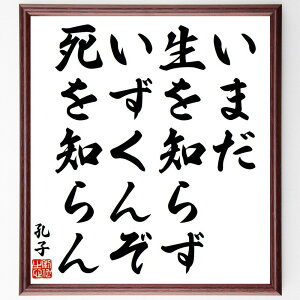 いまだ
生を知らず
いずくんぞ
死を知らん
孔子